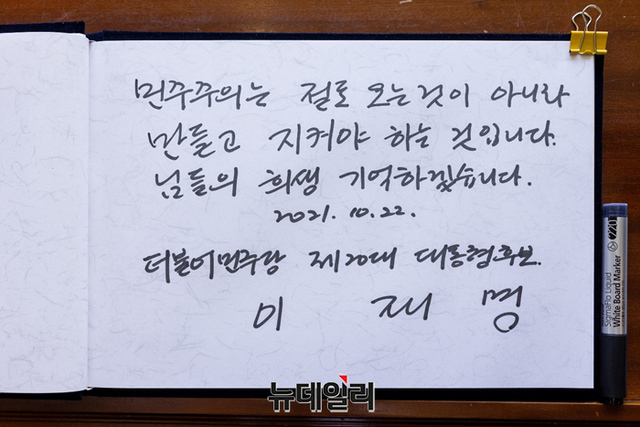 민주주의는 절로 오는 것이 아니라
만들고 지켜야 하는 것입니다.
님들의 희생 기억하겠습니다.
2021. 10. 22.
더불어민주당 제20대 대통령후보.
이 재 명
뉴데일리
SigmaFlo Liquid
White Board Marker
220